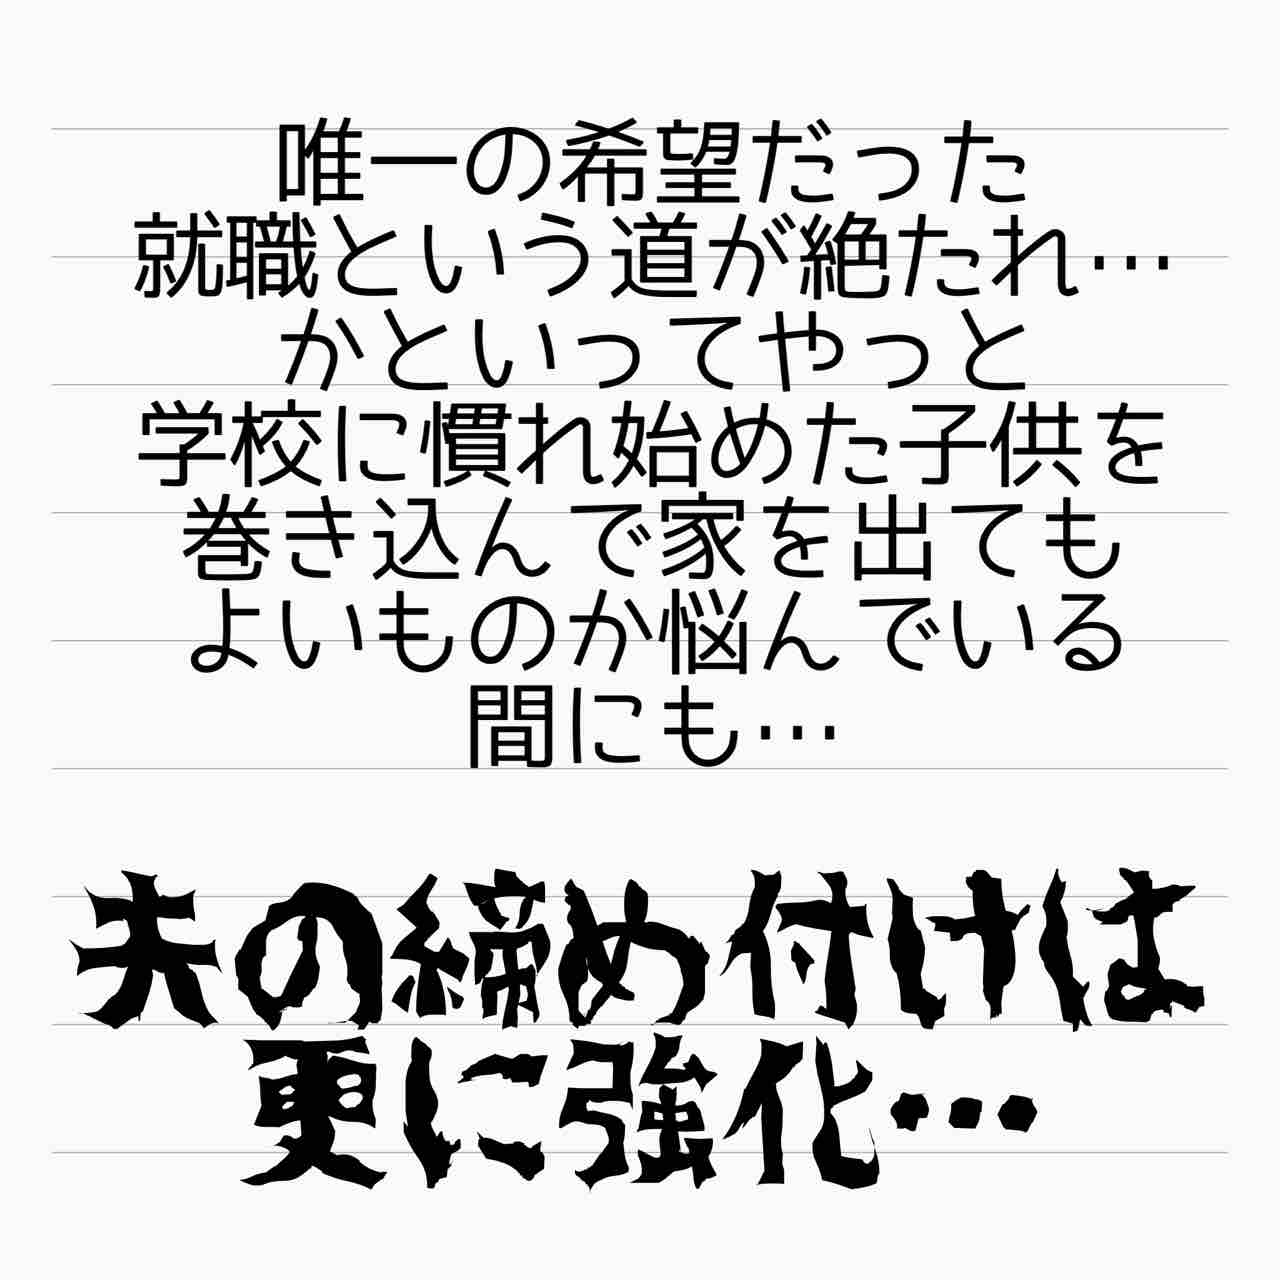 唯一の希望だった
就職という道が絶たれ…
かといってやっと
学校に慣れ始めた子供を
巻き込んで家を出ても
よいものか悩んでいる
間にも…
夫の締め付けは
更に強化…